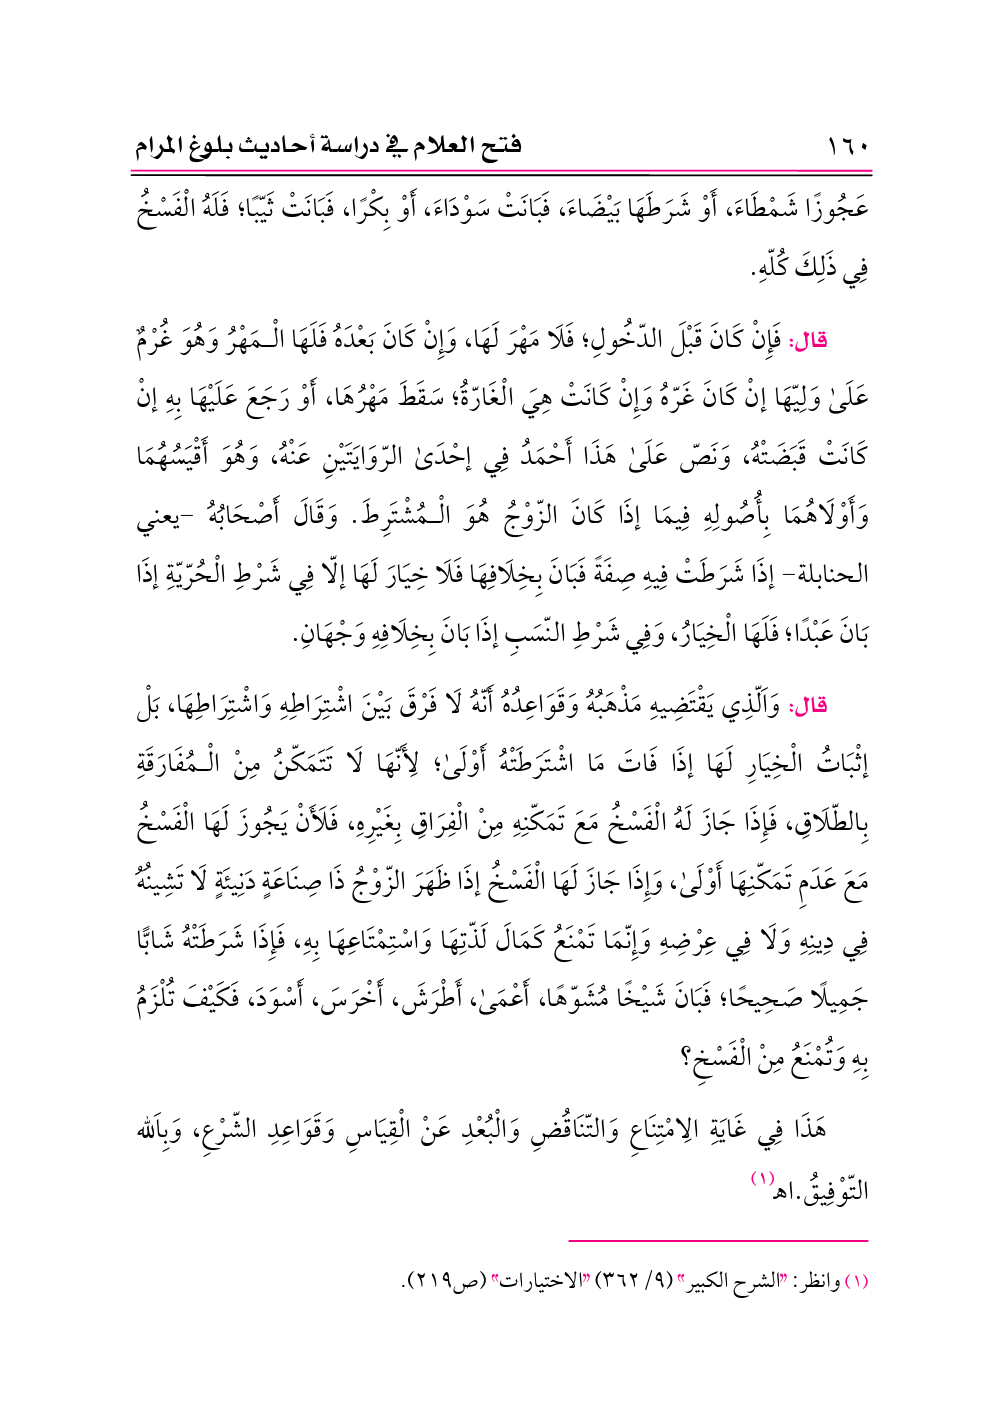 ١٦٠ فتح العلام في دراسة أحاديث بلوغ المرام
عَجُوزًا شَمْطَاءَ، أَوْ شَرَطَهَا بَيْضَاءَ، فَبَانَتْ سَوْدَاءَ، أَوْ بِكْرًا، فَبَانَتْ ثَيّبًا؛ فَلَهُ الْفَسْخُ
فِي ذَلِكَ كُلّهِ.
قال: فَإِنْ كَانَ قَبْلَ الدّخُولِ؛ فَلَا مَهْرَ لَهَا، وَإِنْ كَانَ بَعْدَهُ فَلَهَا الْـمَهْرُ وَهُوَ غُرْمٌ
عَلَىٰ وَلِيّهَا إنْ كَانَ غَرّهُ وَإِنْ كَانَتْ هِيَ الْغَارّةُ؛ سَقَطَ مَهْرُهَا، أَوْ رَجَعَ عَلَيْهَا بِهِ إنْ
كَانَتْ قَبَضَتْهُ، وَنَصّ عَلَىٰ هَذَا أَحْمَدُ فِي إحْدَىٰ الرّوَايَتَيْنِ عَنْهُ، وَهُوَ أَقْيَسُهُمَا
وَأَوْلَاهُمَا بِأُصُولِهِ فِيمَا إذَا كَانَ الزّوْجُ هُوَ الْـمُشْتَرِطَ. وَقَالَ أَصْحَابُهُ -يعني
الحنابلة- إذَا شَرَطَتْ فِيهِ صِفَةً فَبَانَ بِخِلَافِهَا فَلَا خِيَارَ لَهَا إلّا فِي شَرْطِ الْحُرّيّةِ إذَا
بَانَ عَبْدًا؛ فَلَهَا الْخِيَارُ، وَفِي شَرْطِ النّسَبِ إذَا بَانَ بِخِلَافِهِ وَجْهَانِ.
قال: وَاَلّذِي يَقْتَضِيهِ مَذْهَبُهُ وَقَوَاعِدُهُ أَنّهُ لَا فَرْقَ بَيْنَ اشْتِرَاطِهِ وَاشْتِرَاطِهَا، بَلْ
إثْبَاتُ الْخِيَارِ لَهَا إذَا فَاتَ مَا اشْتَرَطَتْهُ أَوْلَىٰ؛ لِأَنّهَا لَا تَتَمَكّنُ مِنْ الْـمُفَارَقَةِ
بِالطّلَاقِ، فَإِذَا جَازَ لَهُ الْفَسْخُ مَعَ تَمَكّنِهِ مِنْ الْفِرَاقِ بِغَيْرِهِ، فَلَأَنْ يَجُوزَ لَهَا الْفَسْخُ
مَعَ عَدَمِ تَمَكّنِهَا أَوْلَىٰ، وَإِذَا جَازَ لَهَا الْفَسْخُ إذَا ظَهَرَ الزّوْجُ ذَا صِنَاعَةٍ دَنِيئَةٍ لَا تَشِينُهُ
فِي دِينِهِ وَلَا فِي عِرْضِهِ وَإِنّمَا تَمْنَعُ كَمَالَ لَذّتِهَا وَاسْتِمْتَاعِهَا بِهِ، فَإِذَا شَرَطَتْهُ شَابًّا
جَمِيلًا صَحِيحًا؛ فَبَانَ شَيْخًا مُشَوّهًا، أَعْمَىٰ، أَطْرَشَ، أَخْرَسَ، أَسْوَدَ، فَكَيْفَ تُلْزَمُ
بِهِ وَتُمْنَعُ مِنْ الْفَسْخِ؟
هَذَا فِي غَايَةِ الِامْتِنَاعِ وَالتّنَاقُضِ وَالْبُعْدِ عَنْ الْقِيَاسِ وَقَوَاعِدِ الشّرْعِ، وَبِاَللّه
التّوْفِيقُ.اهـ (١)
(١) وانظر: "الشرح الكبير" (٩/ ٣٦٢) "الاختيارات" (ص٢١٩).